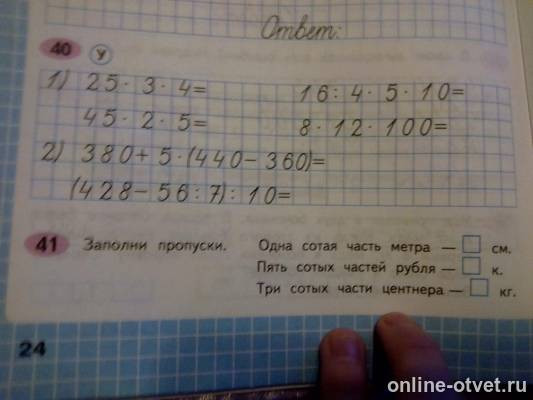 Ответ:
40 У
1) 25 · 3 · 4 = 16 : 4 · 5 · 10 =
45 · 2 · 5 = 8 · 12 · 100 =
2) 380 + 5 · (440 − 360) =
(428 − 56 : 7) : 10 =
41 Заполни пропуски. Одна сотая часть метра — см.
Пять сотых частей рубля — к.
Три сотых части центнера — кг.
24
online-otvet.ru